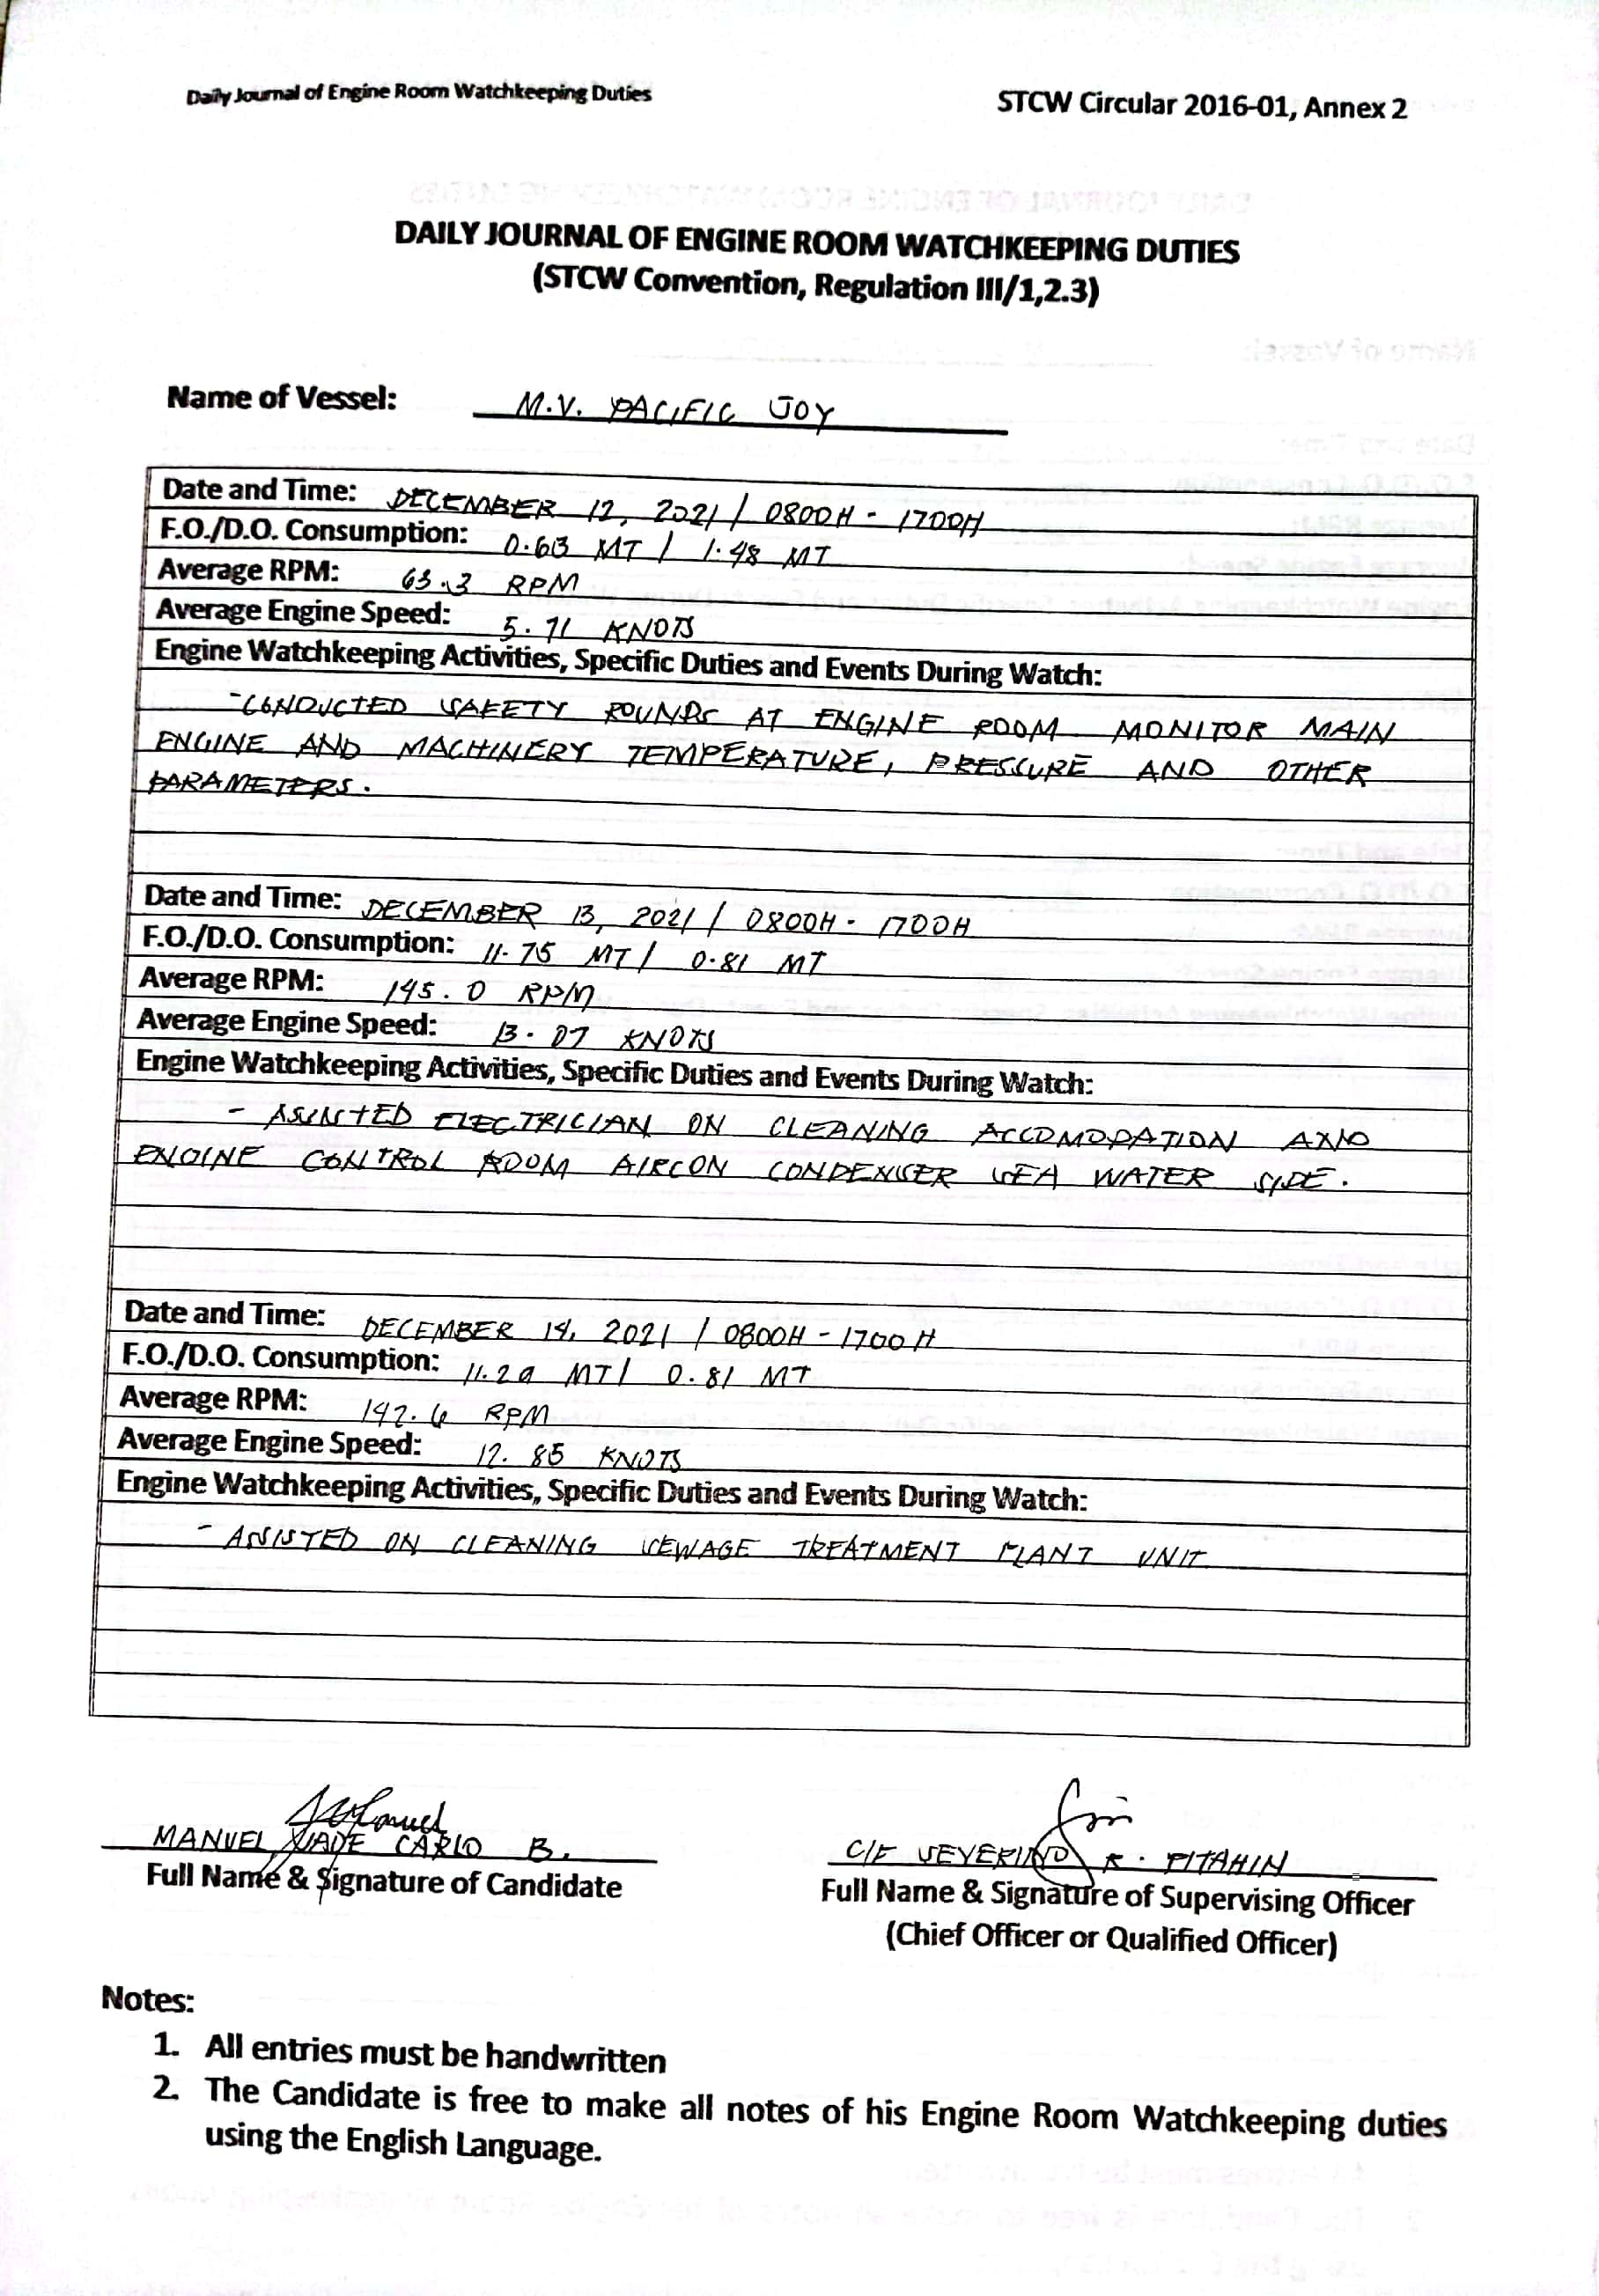 Daily Journal of Engine Room Watchkeeping Duties
STCW Circular 2016-01, Annex 2
DAILY JOURNAL OF ENGINE ROOM WATCHKEEPING DUTIES
(STCW Convention, Regulation III/1,2.3)
Name of Vessel: M.V. PACIFIC JOY
Date and Time: DECEMBER 12, 2021 / 0800H - 1700H
F.O./D.O. Consumption: 0.63 MT / 1.48 MT
Average RPM: 63.3 RPM
Average Engine Speed: 5.71 KNOTS
Engine Watchkeeping Activities, Specific Duties and Events During Watch:
- CONDUCTED SAFETY ROUNDS AT ENGINE ROOM MONITOR MAIN
ENGINE AND MACHINERY TEMPERATURE, PRESSURE AND OTHER
PARAMETERS.
Date and Time: DECEMBER 13, 2021 / 0800H - 1700H
F.O./D.O. Consumption: 11.75 MT / 0.81 MT
Average RPM: 145.0 RPM
Average Engine Speed: 13.07 KNOTS
Engine Watchkeeping Activities, Specific Duties and Events During Watch:
- ASSISTED ELECTRICIAN ON CLEANING ACCOMODATION AND
ENGINE CONTROL ROOM AIRCON CONDENSER SEA WATER SIDE.
Date and Time: DECEMBER 14, 2021 / 0800H - 1700H
F.O./D.O. Consumption: MT / 0.81 MT
Average RPM: 142.6 RPM
Average Engine Speed: 12.85 KNOTS
Engine Watchkeeping Activities, Specific Duties and Events During Watch:
- ASSISTED ON CLEANING SEWAGE TREATMENT PLANT UNIT
MANUEL, JADE CARLO B.
Full Name & Signature of Candidate
C/E SEVERINO R. PITAHIN
Full Name & Signature of Supervising Officer
(Chief Officer or Qualified Officer)
Notes:
1. All entries must be handwritten
2. The Candidate is free to make all notes of his Engine Room Watchkeeping duties
using the English Language.